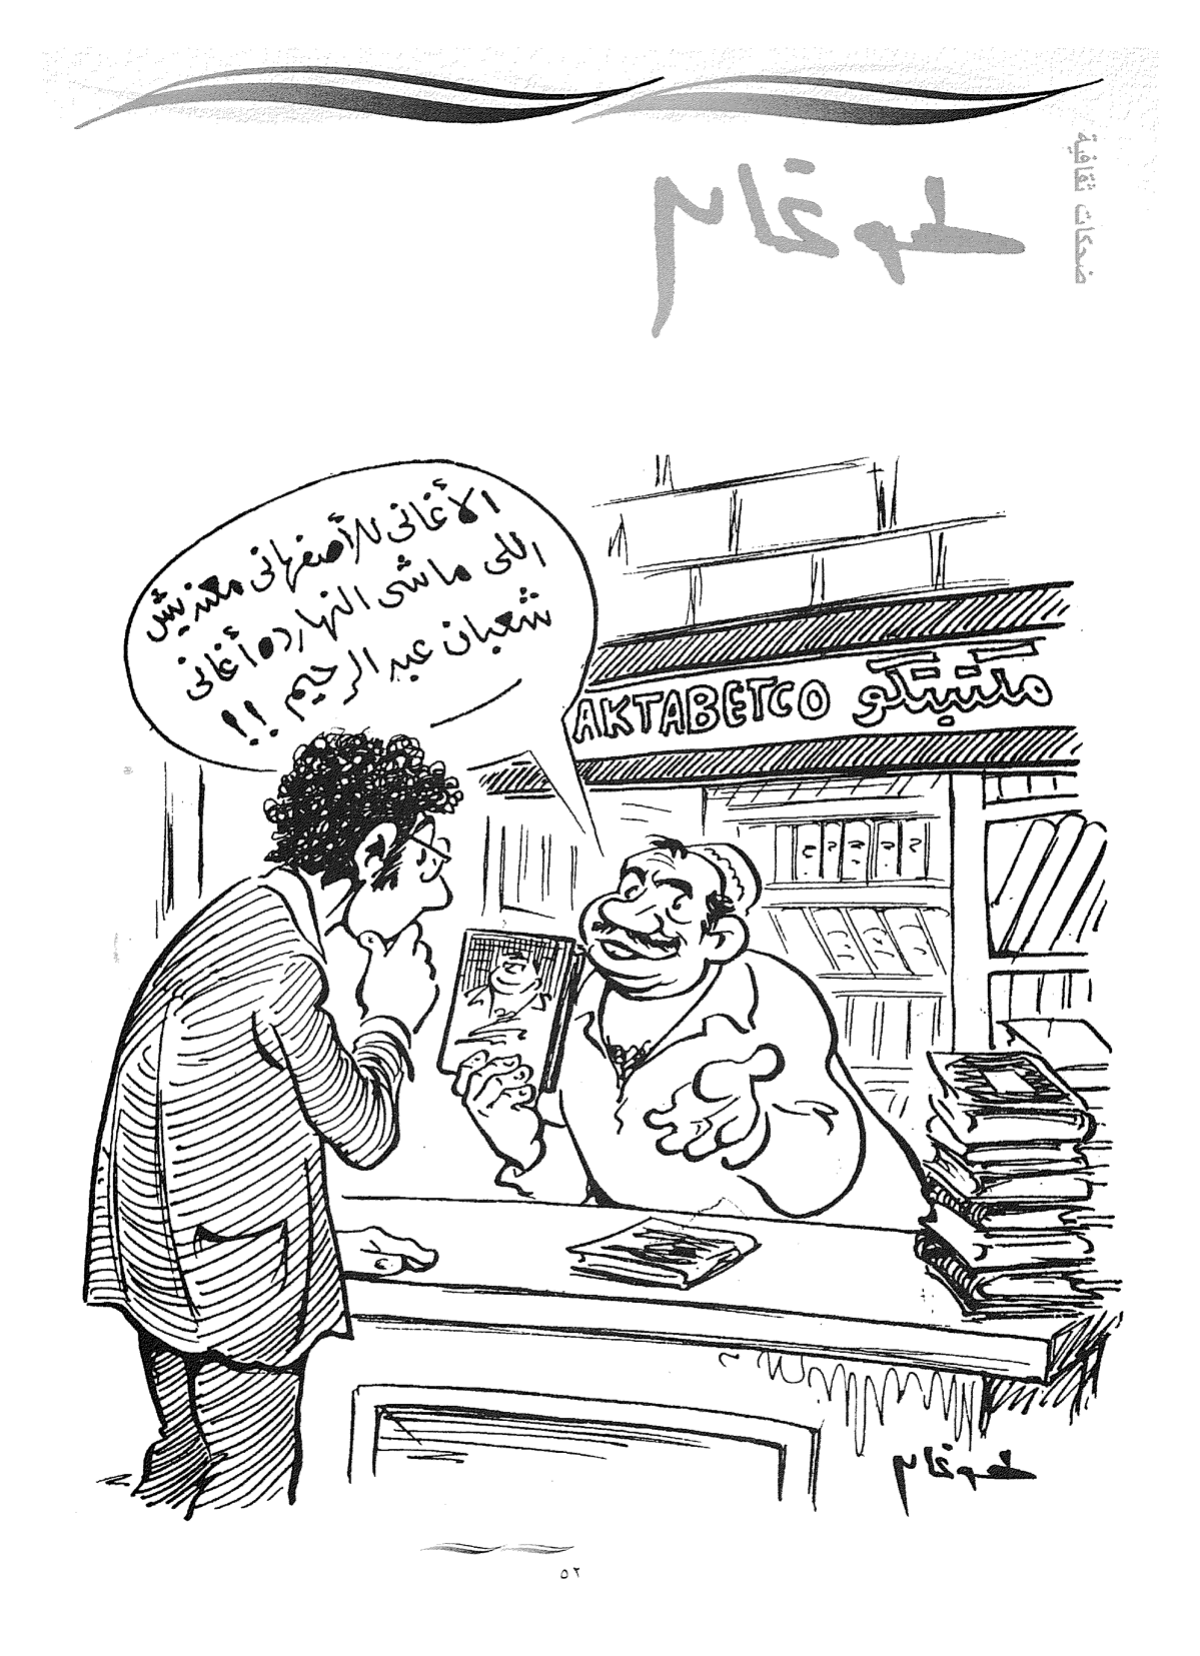 ضحكات ثقافية
طوغان
الأغانى للأصفهانى معنديش
اللى ماشى النهارده أغانى
شعبان عبد الرحيم !!
AKTABETCO مكتبتكو
طوغان
٥٢